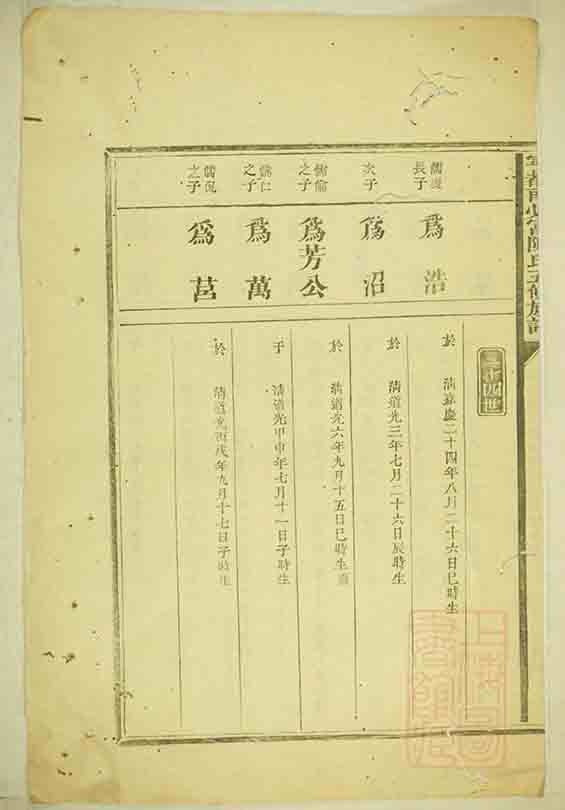 三十四世
長子
為浩
於 清嘉慶二十四年八月二十六日巳時生
次子
為沼
於 清道光三年七月二十六日辰時生
儒倫之子
為芳公
於 清道光六年九月十五日巳時生
儒仁之子
為萬
于 清道光甲申年七月十一日子時生
儒侃之子
為莒
於 清道光丙戌年九月十七日子時生